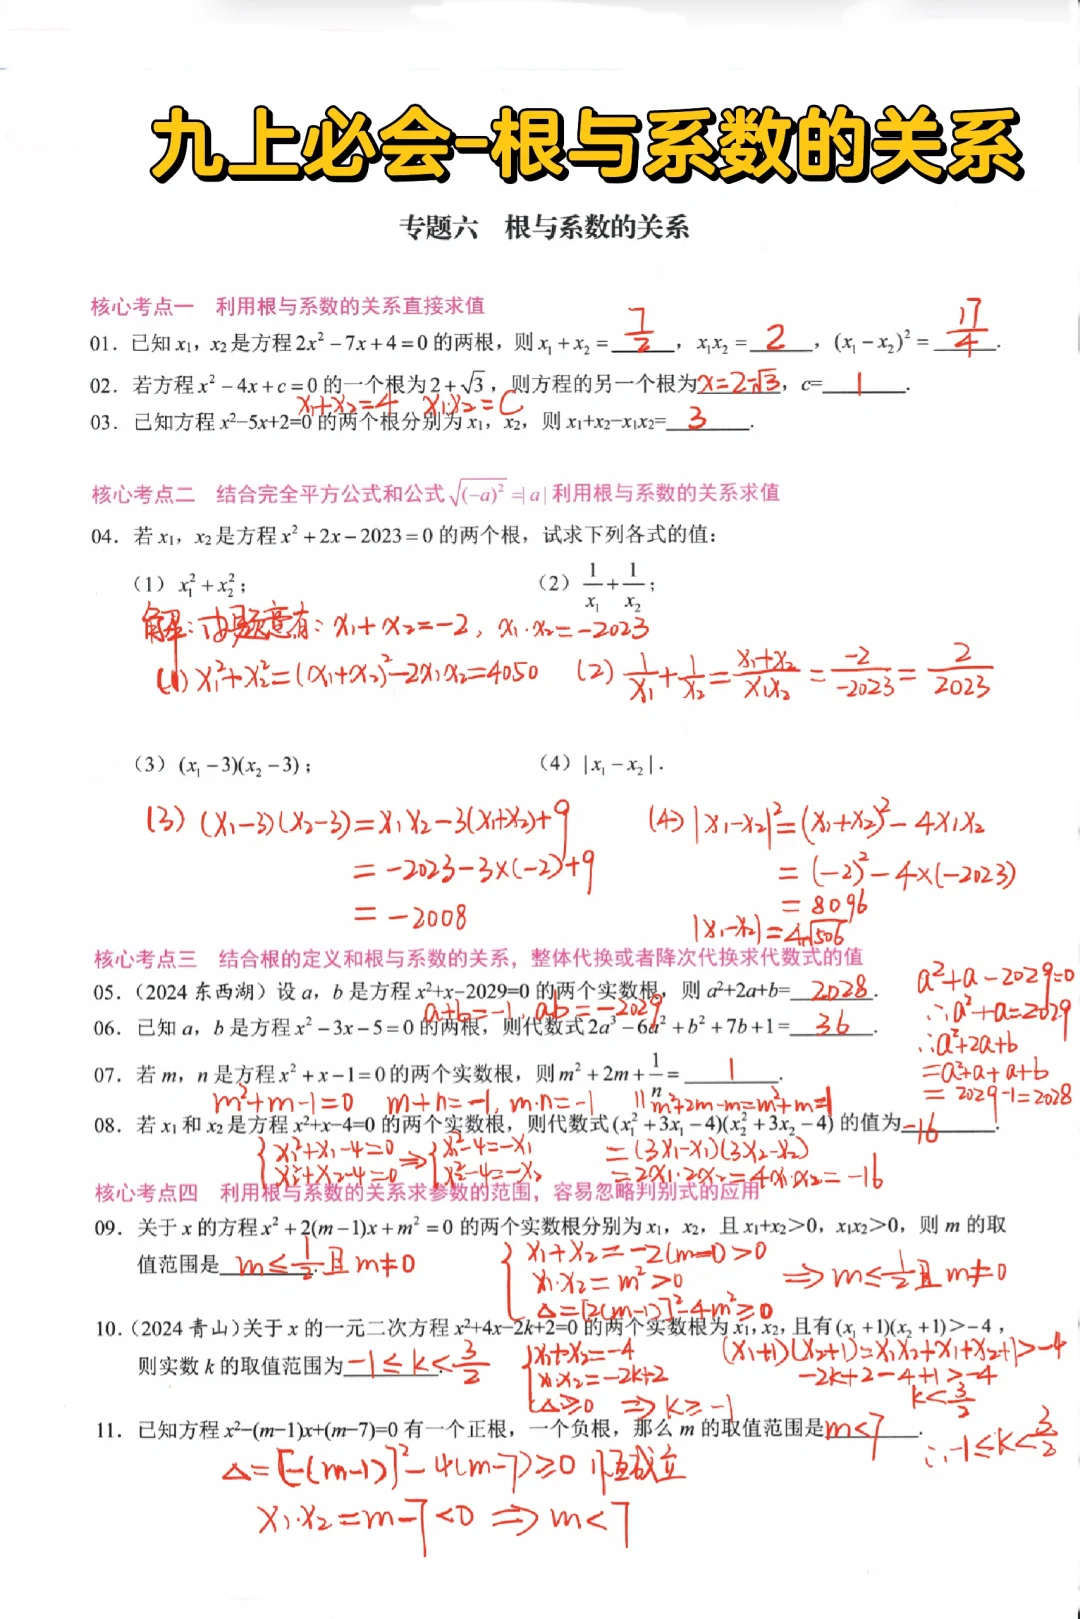 九上必会-根与系数的关系
专题六 根与系数的关系
核心考点一 利用根与系数的关系直接求值
01. 已知 x₁, x₂ 是方程 2x² − 7x + 4 = 0 的两根, 则 x₁ + x₂ = 7/2, x₁x₂ = 2, (x₁ − x₂)² = 17/4.
02. 若方程 x² − 4x + c = 0 的一个根为 2 + √3, 则方程的另一个根为 x=2-√3, c= 1.
x₁+x₂=4 x₁·x₂=C
03. 已知方程 x²−5x+2=0 的两个根分别为 x₁, x₂, 则 x₁+x₂−x₁x₂= 3.
核心考点二 结合完全平方公式和公式 √(−a)² =|a| 利用根与系数的关系求值
04. 若 x₁, x₂ 是方程 x² + 2x − 2023 = 0 的两个根, 试求下列各式的值:
(1) x₁² + x₂²; (2) 1/x₁ + 1/x₂;
解:由题意有: x₁+x₂=-2, x₁·x₂=-2023
(1) x₁²+x₂²=(x₁+x₂)²-2x₁x₂=4050 (2) 1/x₁+1/x₂=(x₁+x₂)/(x₁x₂)=-2/-2023=2/2023
(3) (x₁ − 3)(x₂ − 3); (4) |x₁ − x₂|.
(3) (x₁-3)(x₂-3)=x₁x₂-3(x₁+x₂)+9 (4) |x₁-x₂|²=(x₁+x₂)²-4x₁x₂
=-2023-3×(-2)+9 =(-2)²-4×(-2023)
=-2008 =8096
|x₁-x₂|=4√506
核心考点三 结合根的定义和根与系数的关系, 整体代换或者降次代换求代数式的值
a²+a-2029=0
05. (2024 东西湖) 设 a, b 是方程 x²+x−2029=0 的两个实数根, 则 a²+2a+b= 2028.
∴a²+a=2029
a+b=-1, ab=-2029
06. 已知 a, b 是方程 x² − 3x − 5 = 0 的两根, 则代数式 2a³ − 6a² + b² + 7b + 1 = 36.
∴a²+2a+b
07. 若 m, n 是方程 x² + x − 1 = 0 的两个实数根, 则 m² + 2m + 1/n = 1.
=a²+a+a+b
=2029-1=2028
m²+m-1=0 m+n=-1, m·n=-1 || m²+2m-m=m²+m=1
08. 若 x₁ 和 x₂ 是方程 x²+x−4=0 的两个实数根, 则代数式 (x₁² + 3x₁ − 4)(x₂² + 3x₂ − 4) 的值为 -16.
{x₁²+x₁-4=0 ⇒ {x₁²-4=-x₁ =(3x₁-x₁)(3x₂-x₂)
x₂²+x₂-4=0 x₂²-4=-x₂ =2x₁·2x₂=4x₁·x₂=-16
核心考点四 利用根与系数的关系求参数的范围, 容易忽略判别式的应用
09. 关于 x 的方程 x² + 2(m − 1)x + m² = 0 的两个实数根分别为 x₁, x₂, 且 x₁+x₂>0, x₁x₂>0, 则 m 的取
值范围是 m≤1/2且m≠0.
{x₁+x₂=-2(m-1)>0
x₁·x₂=m²>0 ⇒ m≤1/2且m≠0
△=[2(m-1)]²-4m²≥0
10. (2024 青山) 关于 x 的一元二次方程 x²+4x−2k+2=0 的两个实数根为 x₁, x₂, 且有 (x₁ + 1)(x₂ + 1) > −4,
则实数 k 的取值范围为 -1≤k<3/2.
{x₁+x₂=-4 (x₁+1)(x₂+1)=x₁x₂+x₁+x₂+1>-4
x₁x₂=-2k+2 -2k+2-4+1>-4
△≥0 ⇒ k≥-1 k<3/2
11. 已知方程 x²−(m−1)x+(m−7)=0 有一个正根, 一个负根, 那么 m 的取值范围是 m<7.
∴-1≤k<3/2
△=[-(m-1)]²-4(m-7)≥0 恒成立
x₁·x₂=m-7<0 ⇒ m<7